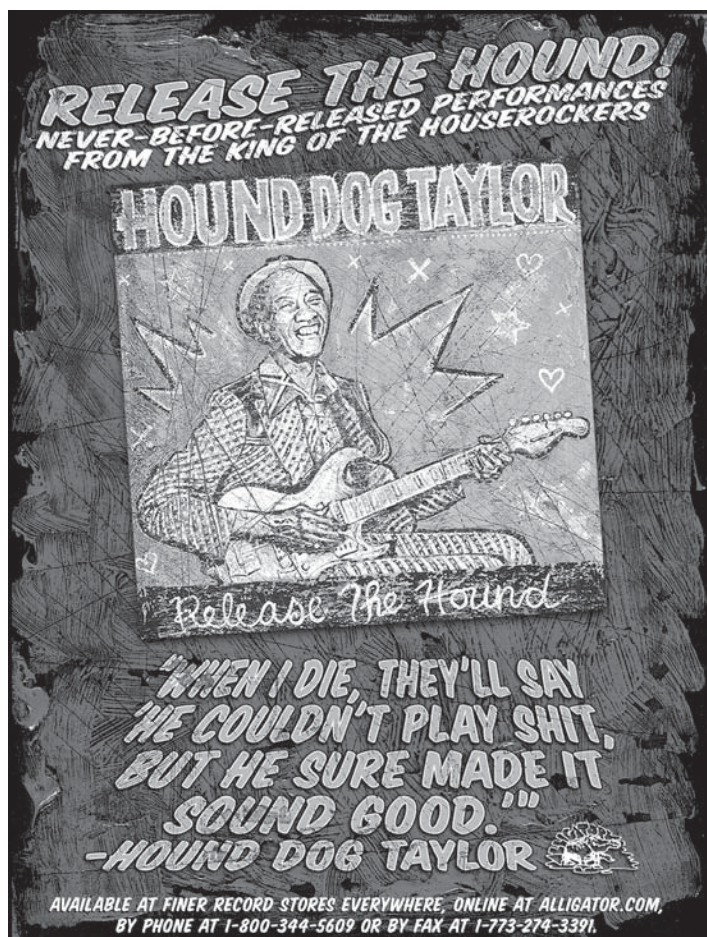 RELEASE THE HOUND!
NEVER-BEFORE-RELEASED PERFORMANCES
FROM THE KING OF THE HOUSEROCKERS
HOUND DOG TAYLOR
Release The Hound
"WHEN I DIE, THEY'LL SAY
'HE COULDN'T PLAY SHIT,
BUT HE SURE MADE IT
SOUND GOOD.'"
-HOUND DOG TAYLOR
AVAILABLE AT FINER RECORD STORES EVERYWHERE, ONLINE AT ALLIGATOR.COM,
BY PHONE AT 1-800-344-5609 OR BY FAX AT 1-773-274-3391.